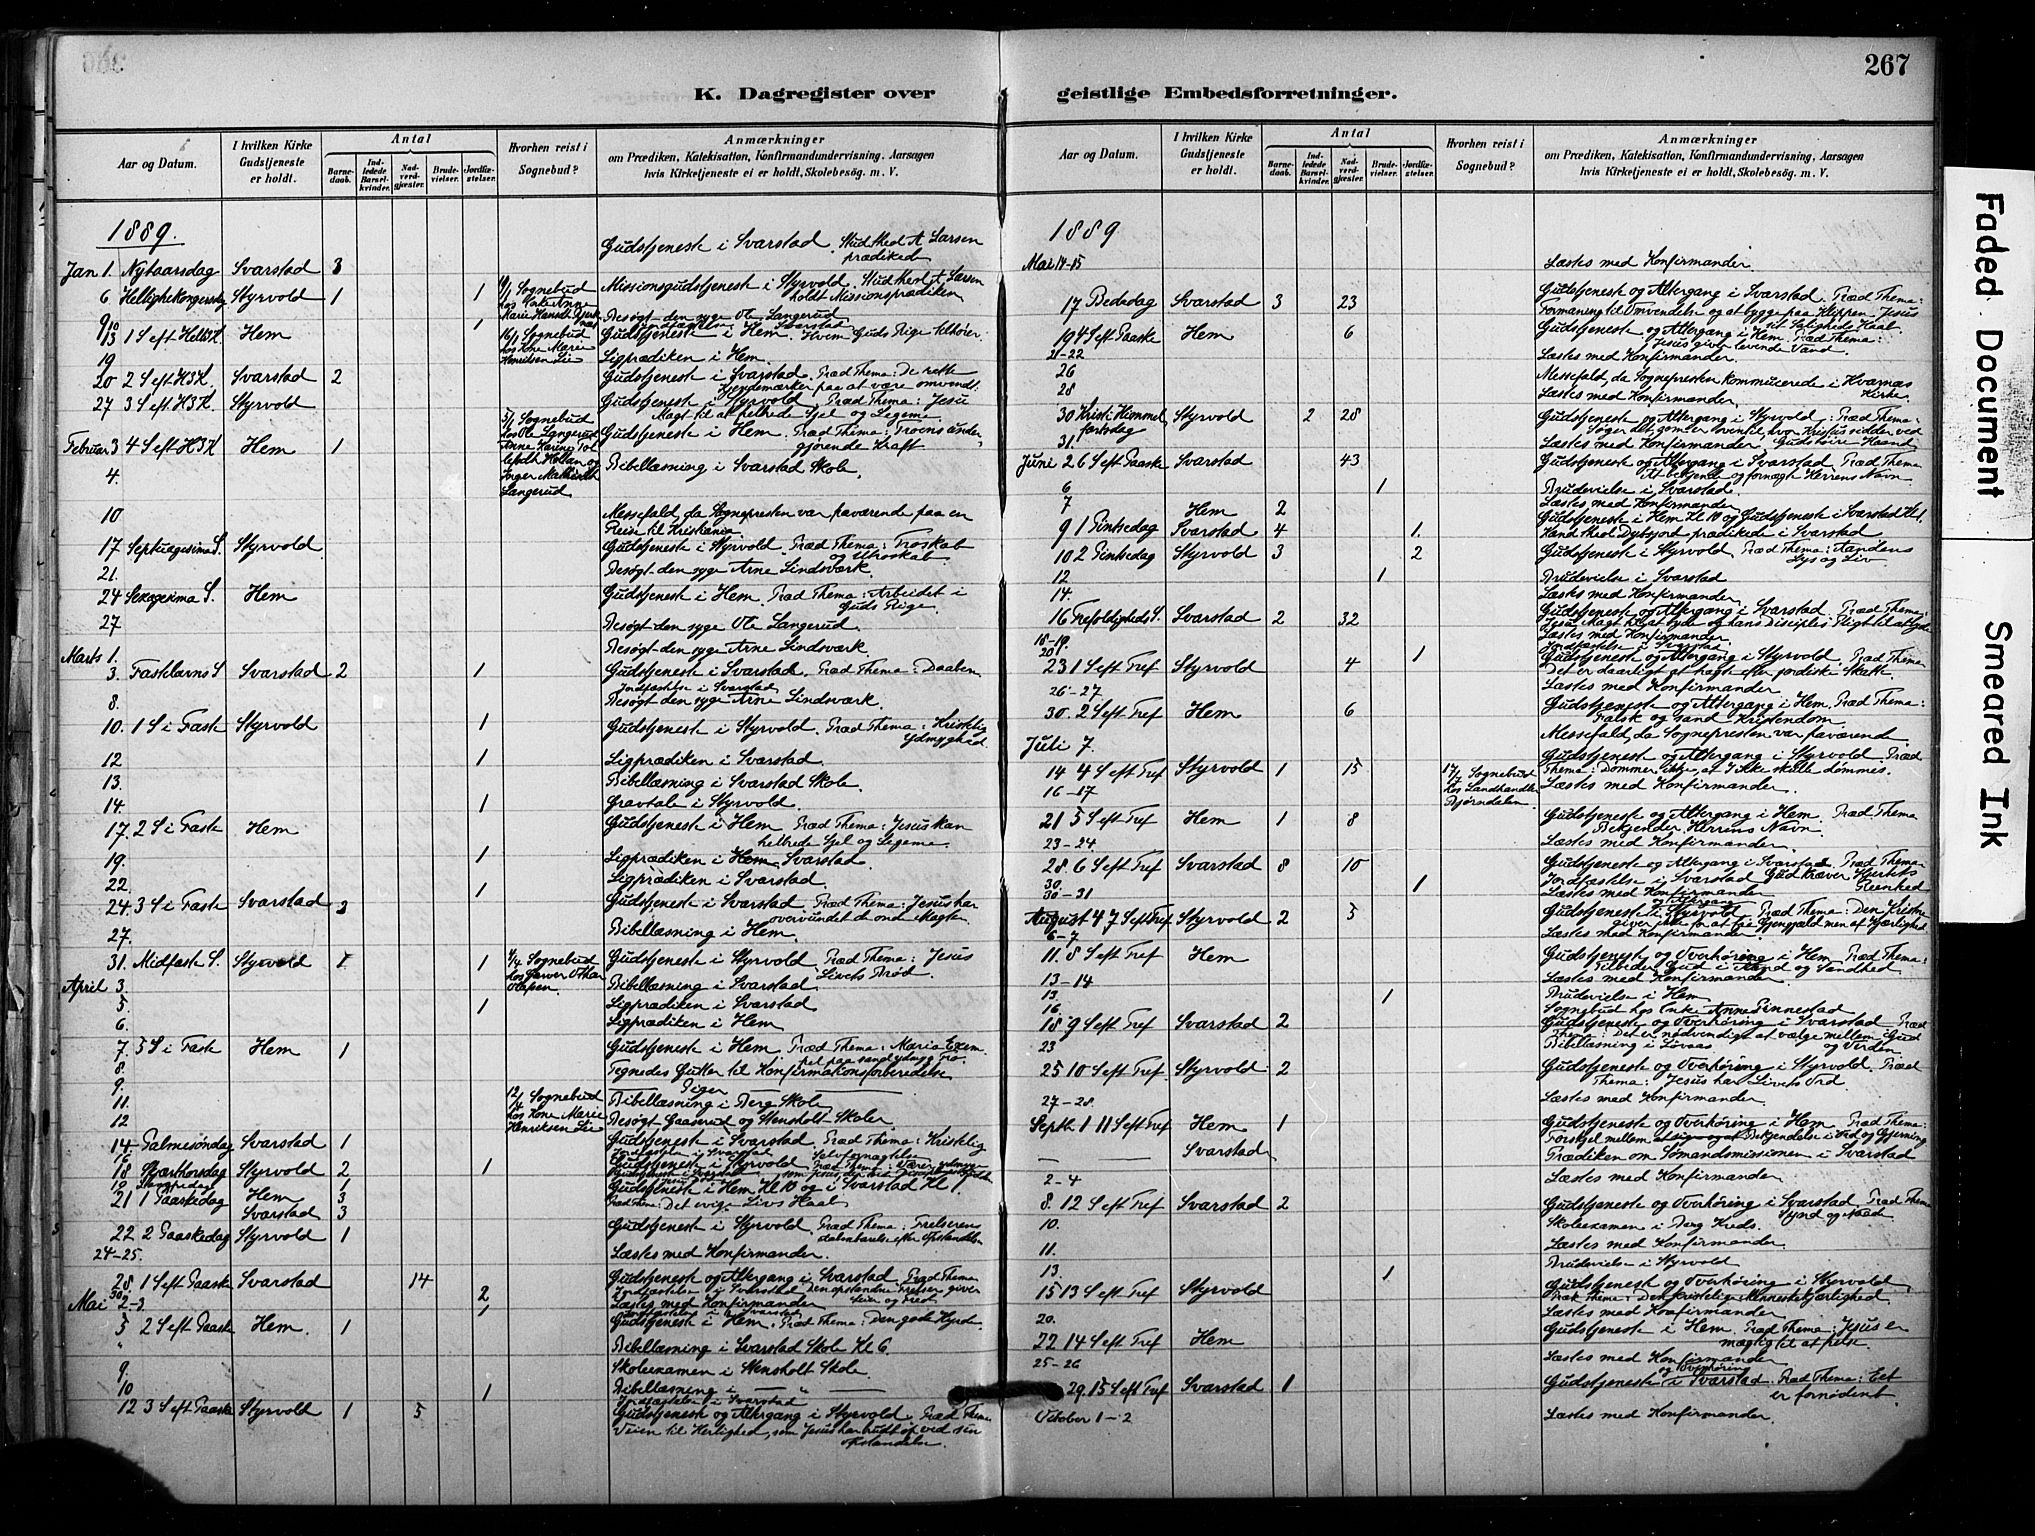 267
K. Dagregister over geistlige Embedsforretninger.
Aar og Datum. I hvilken Kirke Gudstjeneste er holdt. Antal Barnedaab. Indledede Barselkvinder. Nadverdgjæster. Brudevielser. Jordfæstelser. Hvorhen reist i Sognebud? Anmærkninger om Prædiken, Katekisation, Konfirmandundervisning, Aarsagen hvis Kirketjeneste ei er holdt, Skolebesøg. m. V.
1889.
Gudstjeneste i Svarstad. Stud theol A Larsen
Jan 1. Nytaarsdag Svarstad 3 prædiked
6 Hellighekongersdag Styrvold 1 1 Sognebud Missionsgudstjeneste i Styrvold. Stud theol A Larsen
holdt Missionsprædiken
9 Besøgt den syge Ole Langerud
13 1 S eft Hell3K. Hem 1 16/1 Sognebud Gudstjeneste i Hem. Hvem Guds Rige tilhører.
hos Kone Marie
19 Henriksen Lie Ligprædiken i Hem.
20 2 S eft H3K. Svarstad 2 Gudstjeneste i Svarstad. Præd Thema: De rette
Kjendemærker paa at være omvendt.
27 3 S eft. H3K. Styrvold Gudstjeneste i Styrvold Præd Thema: Jesu
Sognebud Magt til at helbrede Sjel og Legeme.
Februar 3 4 S eft H3K Hem 1 hos Ole Langerud Gudstjeneste i Hem. Præd Thema: Troens under-
gjørende Kraft
4. Bibellæsning i Svarstad Skole.
Langerud
10 Messefald, da Sognepresten var fraværende paa en
Reise til Kristiania
17 Septuagesima S. Styrvold. Gudstjeneste i Styrvold. Præd Thema: Troskab
og Utroskab.
21. Besøgt den syge Arne Lindsværk.
24 Sexagesima S. Hem Gudstjeneste i Hem. Præd Thema: Arbeidet i
Guds Rige.
27 Besøgt den syge Ole Langerud.
Marts 1. Besøgt den syge Arne Lindsværk.
3. Fastelavns S Svarstad 2 1 Gudstjeneste i Svarstad. Præd Thema: Daaben
Jordfæstelse i Svarstad
8. Besøgt den syge Arne Lindsværk.
10. 1 S i Faste Styrvold 1 Gudstjeneste i Styrvold. Præd Thema: Kristelig
Ydmyghed
12 1 Ligprædiken i Svarstad.
13. Bibellæsning i Svarstad Skole.
14. 1 Gravtale i Styrvold.
17. 2 S i Faste Hem Gudstjeneste i Hem Præd Thema: Jesus kan
helbrede Sjel og Legeme.
19. 1 Ligprædiken i Hem Svarstad
22. Ligprædiken i Svarstad.
24. 3 S i Faste Svarstad 3 1 Gudstjeneste i Svarstad Præd Thema: Jesus har
overvundet de onde Magter
27. Bibellæsning i Hem.
31. Midfaste S. Styrvold 1 1 1/4 Sognebud Gudstjeneste i Styrvold Præd Thema: Jesus
Livets Brød.
April 3. Bibellæsning i Svarstad.
5. 1 Ligprædiken i Svarstad
6. Ligprædiken i Hem
7. 5 S i Faste Hem 1 Gudstjeneste i Hem. Præd Thema: Maria Exem-
pel paa sand ydmyg Tro.
8. Tegnedes Gutter til Konfirmationsforberedelse
9. Piger
11. 12/4 Sognebud Bibellæsning i Berg Skole
12 hos Kone Marie Henriksen Lie Besøgt Gaaserud og Stensholt Skoler
14. Palmesøndag Svarstad 1 Gudstjeneste i Svarstad. Præd Thema: Kristelig
16 Jordfæstelse i Svarstad Selvfornægtelse
18 Skjærthorsdag Styrvold 2 1 Gudstjeneste i Styrvold
19 Langfredag 1
21 1 Paaskedag Hem 3 Gudstjeneste i Hem Kl 10 og i Svarstad Kl 1.
Svarstad 3 Præd Thema: Det evige Livs Haab
22 2 Paaskedag Styrvold 1 Gudstjeneste i Styrvold Præd Thema: Frelserens
Aabenbarelse efter Opstandelsen
24-25. Læstes med Konfirmander.
28. 1 S eft Paaske Svarstad 14 Gudstjeneste og Altergang i Svarstad. Præd Thema
30 2 Jordfæstelse i Svarstad Den opstandne Frelser giver
Mai 2-3. 1 Læstes med Konfirmander Seier og Fred
Jordfæstelse i Svarstad
5 2 S eft Paaske Hem. 1 Gudstjeneste i Hem: Præd Thema: Den gode Hyrde.
" Bibellæsning i Svarstad Skole Kl 6.
9. Skoleexamen i Stensholt Skole
10 1 Bibellæsning i — " —
Jordfæstelse i Svarstad
12 3 S eft Paaske Styrvold 1 5 Gudstjeneste og Altergang i Styrvold Præd Thema
Veien til Herlighed, som Jesus har brudt op ved sin
Opstandelse.
Aar og Datum. I hvilken Kirke Gudstjeneste er holdt. Antal Barnedaab. Indledede Barselkvinder. Nadverdgjæster. Brudevielser. Jordfæstelser. Hvorhen reist i Sognebud? Anmærkninger om Prædiken, Katekisation, Konfirmandundervisning, Aarsagen hvis Kirketjeneste ei er holdt, Skolebesøg. m. V.
1889
Mai 14-15 Læstes med Konfirmander.
17 Bededag Svarstad 3 23 Gudstjeneste og Altergang i Svarstad. Præd Thema:
Formaning til Omvendelse og at bygge paa Klippen. Jesus
sit Saligheds Haab.
19 4 S eft Paaske Hem 6 Gudstjeneste og Altergang i Hem. Præd Thema:
Jesus giver levende Vand.
21-22 Læstes med Konfirmander.
26 Messefald, da Sognepresten kommunicerede i Hvarnæs
Kirke.
28 Læstes med Konfirmander.
30 Kristi Himmelfartsdag Styrvold 2 28 Gudstjeneste og Altergang i Styrvold. Præd Thema:
Søger det, som er oventil, hvor Kristus sidder ved
31. Læstes med Konfirmander. Guds høire Haand
Juni 2 6 S eft Paaske Svarstad 43 Gudstjeneste og Altergang i Svarstad. Præd Thema
At bekjende og fornegte Herrens Navn
6 1 Brudevielse i Svarstad.
7 Læstes med Konfirmander
Hem 2 Gudstjeneste i Hem Kl 10 og Gudstjeneste i Svarstad Kl 1.
9 1 Pintsedag Svarstad 4 1. Kand theol Dybsjord prædikede i Svarstad
10 2 Pintsedag Styrvold 3 2 Gudstjeneste i Styrvold. Præd Thema: Aandens
Lys og Liv
12 1 Brudevielse i Svarstad
14. Læstes med Konfirmander
16 Trefoldigheds S. Svarstad 2 32 Gudstjeneste og Altergang i Svarstad. Præd Thema:
18-19. Læstes med Konfirmander
20 1 Jordfæstelse i Svarstad
23 1 S eft Tref Styrvold 4 Gudstjeneste og Altergang i Styrvold. Præd Thema
Det er daarligt at hægte efter jordiske Skatte.
26-27 Læstes med Konfirmander
30. 2 S eft Tref Hem 6 Gudstjeneste og Altergang i Hem. Præd Thema:
Falsk og sand Kristendom.
Juli 7. Messefald, da Sognepresten var fraværende
14 4 S eft Tref Styrvold 1 15 17/7 Sognebud hos Landhandler Bjørndalen Gudstjeneste og Altergang i Styrvold. Præd
Thema: Dommer ikke, at I ikke skulle dømmes.
16-17 Læstes med Konfirmander.
21 5 S eft Tref Hem 1 8 Gudstjeneste og Altergang i Hem. Præd Thema
Bekjender Herrens Navn.
23-24 Læstes med Konfirmander.
28. 6 S eft Tref Svarstad 8 10 Gudstjeneste og Altergang i Svarstad. Præd Thema
Gud kræver Hjertets
30. 1 Jordfæstelse i Svarstad Reenhed
30-31 Læstes med Konfirmander
og Altergang
August 4 7 S eft Tref Styrvold 2 5 Gudstjeneste i Styrvold Præd Thema: Den Kristne
giver ikke for at faa Gjengjæld men af Kjærlighed
6-7 Læstes med Konfirmander.
11. 8 S eft Tref Hem Gudstjeneste og Overhøring i Hem Præd Thema:
Tilbeder Gud i Aand og Sandhed
13-14 Læstes med Konfirmander
13 1 Brudevielse i Hem
16. Sognebud hos Enke Anne Pinnestad
18. 9 S eft Tref Svarstad 2 Gudstjeneste og Overhøring i Svarstad Præd
Thema: Det er nødvendigt at vælge mellem Gud
23 Bibellæsning i Løvaas og Verden
25 10 S eft Tref. Styrvold 2 Gudstjeneste og Overhøring i Styrvold. Præd
Thema: Jesus har Livets Ord.
27-28. Læstes med Konfirmander.
Septb. 1 11 S eft Tref Hem 1 Gudstjeneste og Overhøring i Hem. Præd Thema:
Forskjel mellem Bekjendelse i Ord og Gjerning
— — Svarstad Prædiken om Sømandsmissionen i Svarstad
2-4 Læstes med Konfirmander
8. 12 S eft Tref Svarstad 2 Gudstjeneste og Overhøring i Svarstad Præd Thema
Synd og Naade
10. Skoleexamen i Berg Kreds.
11. Læstes med Konfirmander
13. 1 Brudevielse i Styrvold
15 13 S eft Tref Styrvold Gudstjeneste og Overhøring i Styrvold,
Præd Thema: Den kristelige Menneskekjærlighed.
20. Læstes med Konfirmander
22 14 S eft Tref Hem Gudstjeneste i Hem. Præd Thema: Jesus er
mægtig til at frelse
25-26 Læstes med Konfirmander
og Overhøring
29. 15 S eft Tref Svarstad 1 Gudstjeneste i Svarstad Præd Thema: Eet
er fornødent.
October 1-2 Læstes med Konfirmander.
Faded Document
Smeared Ink